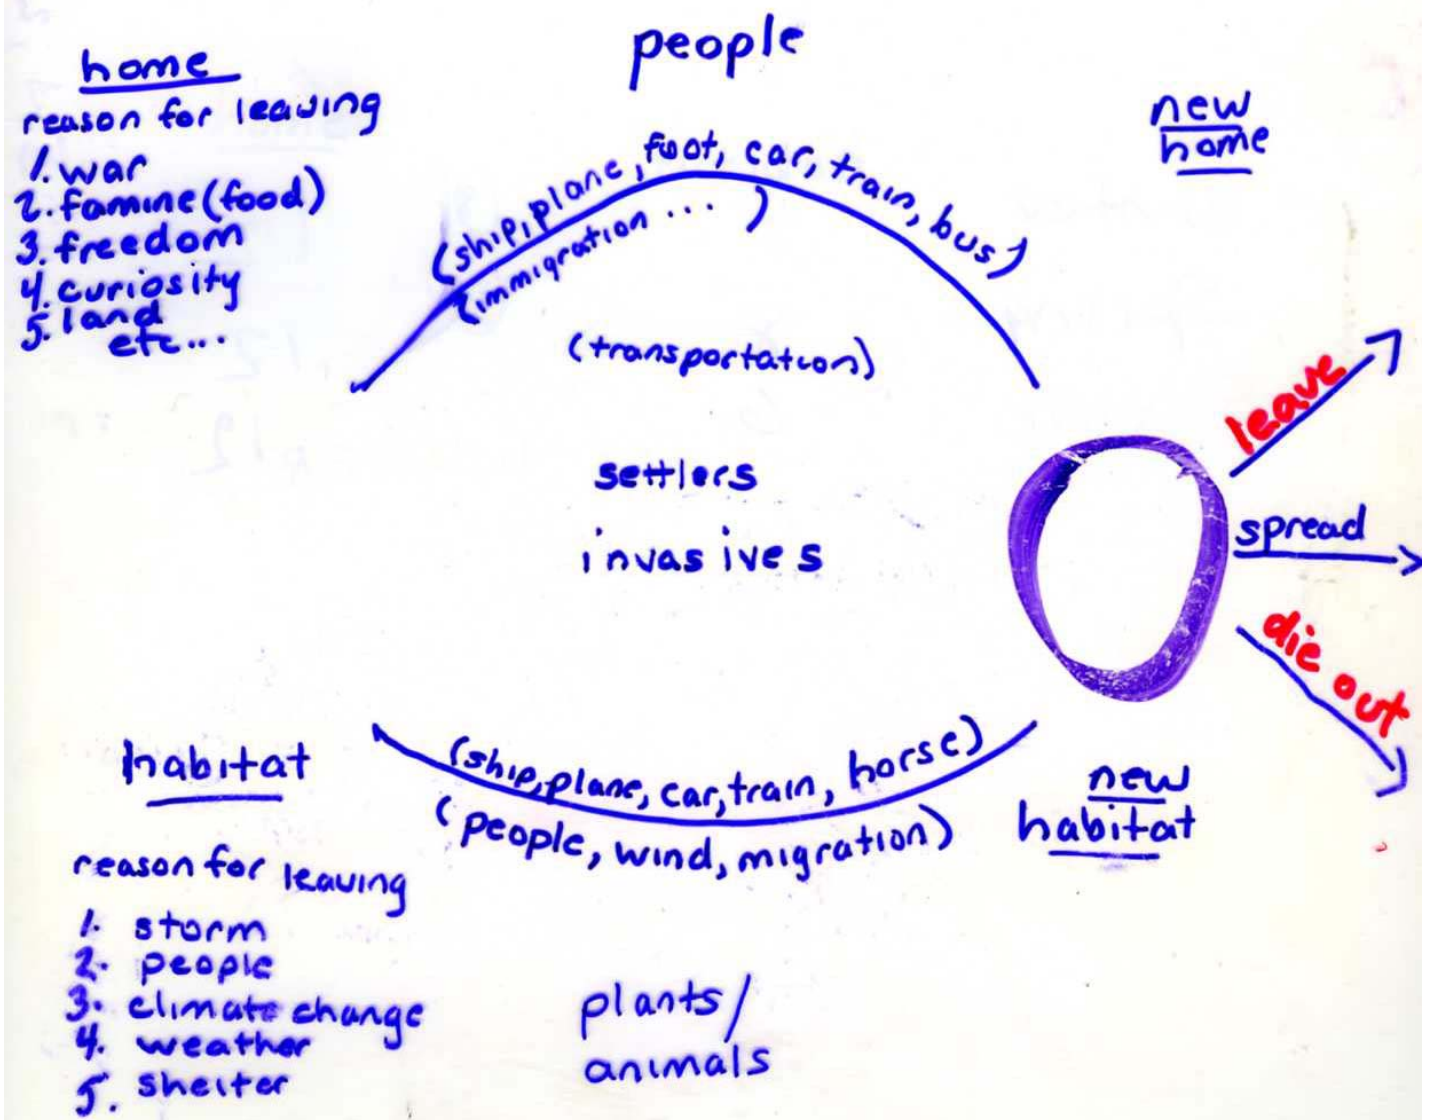 people
home
reason for leaving
1. war
2. famine (food)
3. freedom
4. curiosity
5. land
etc...
(ship, plane, foot, car, train, bus)
(immigration ... )
(transportation)
new
home
settlers
invasives
leave
spread
die out
habitat
reason for leaving
1. storm
2. people
3. climate change
4. weather
5. shelter
(ship, plane, car, train, horse)
(people, wind, migration)
new
habitat
plants/
animals